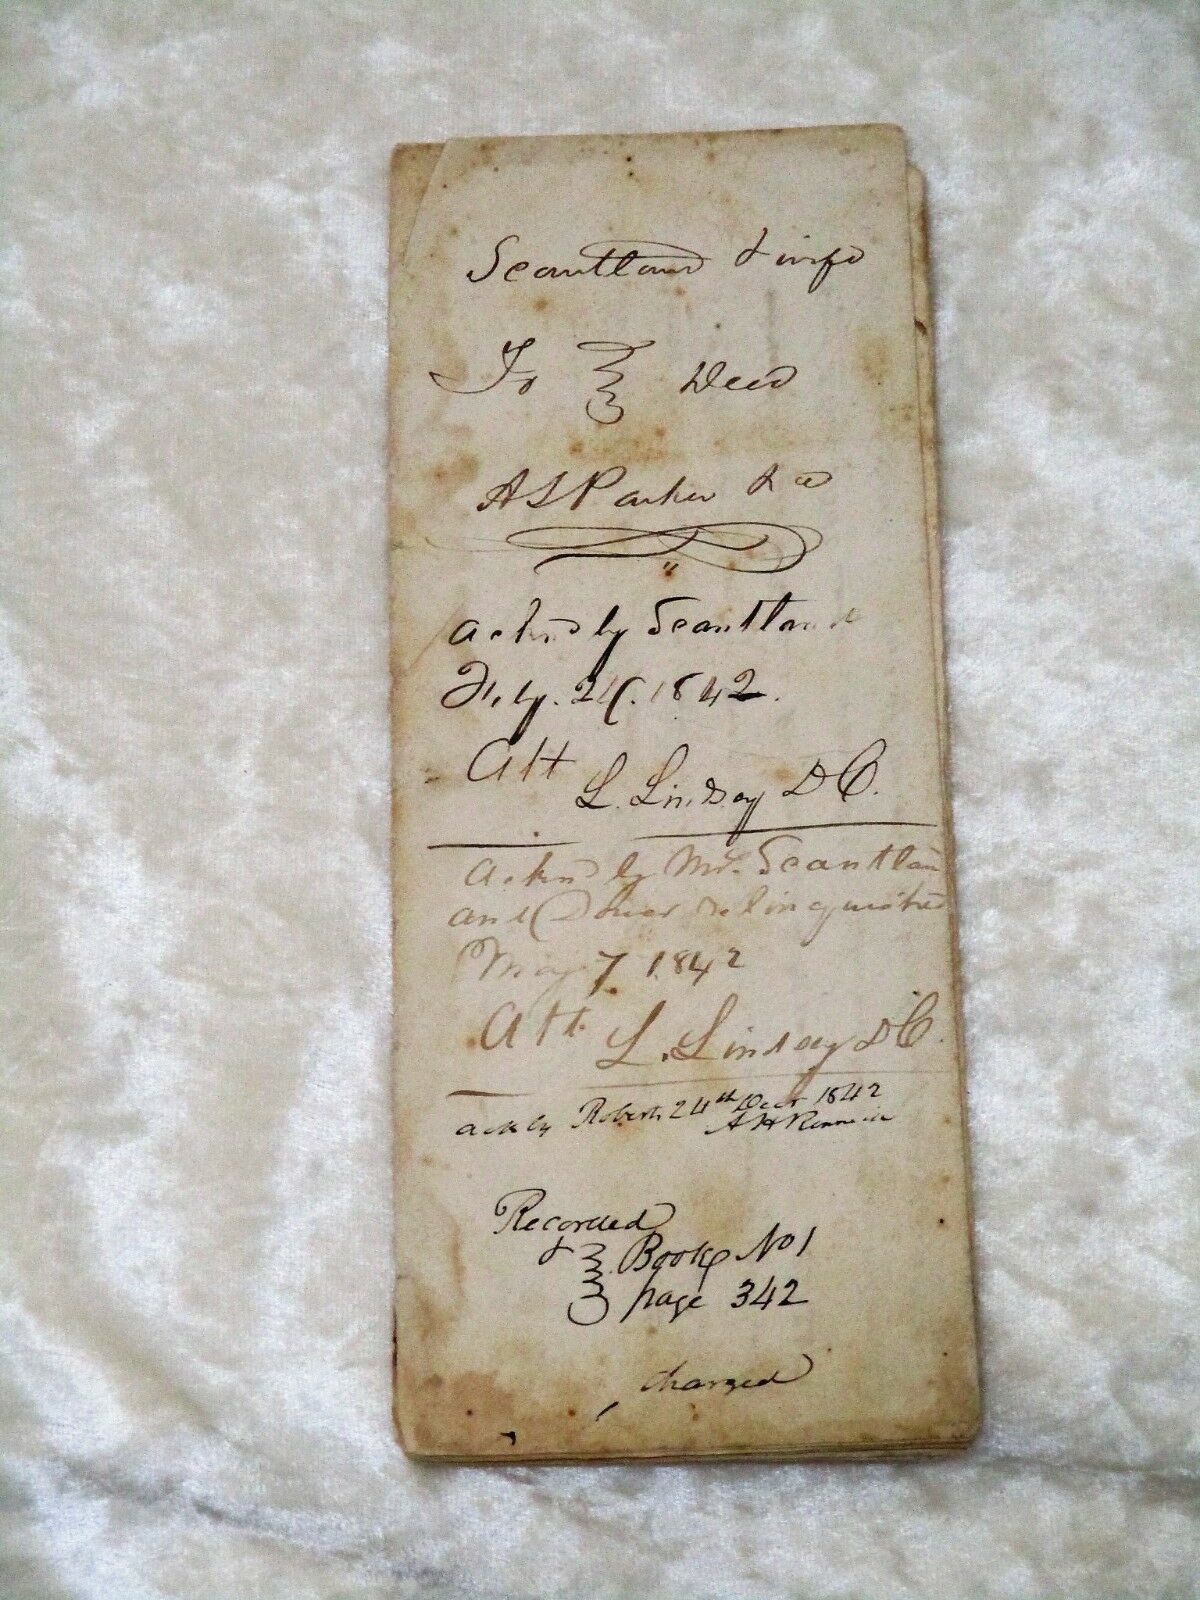 Scantland & wife
To Deed
A S Parker & co
acknd by Scantland
Feby. 24. 1842.
Att
L. Lindsay D C.
acknd by Mrs. Scantlan
and Dower relinquished
May 7 1842
Att. L. Lindsay D C.
ack by Roberts 24th Decr 1842
A H Rennick
Recorded
& Book No 1
page 342
charged